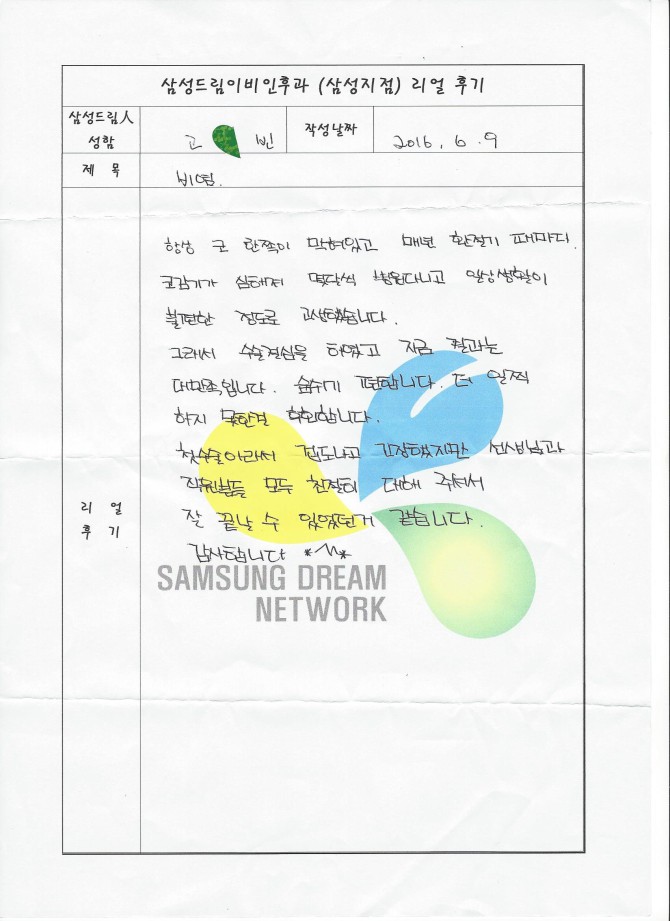 삼성드림이비인후과 (삼성지점) 리얼 후기
삼성드림人 성함
고 빈
작성날짜
2016. 6. 9
제 목
비염.
리 얼 후 기
항상 코 한쪽이 막혀있고 매년 환절기 때마다
코감기가 심해져 몇달씩 병원다니고 일상생활이
불편한 정도로 고생했습니다.
그래서 수술결심을 하였고 지금 결과는
대만족입니다. 숨쉬기 편합니다. 더 일찍
하지 못한걸 후회합니다.
첫수술이라서 겁도나고 긴장했지만 선생님과
직원분들 모두 친절히 대해 주셔서
잘 끝날 수 있었던거 같습니다.
감사합니다 *^^*
SAMSUNG DREAM
NETWORK